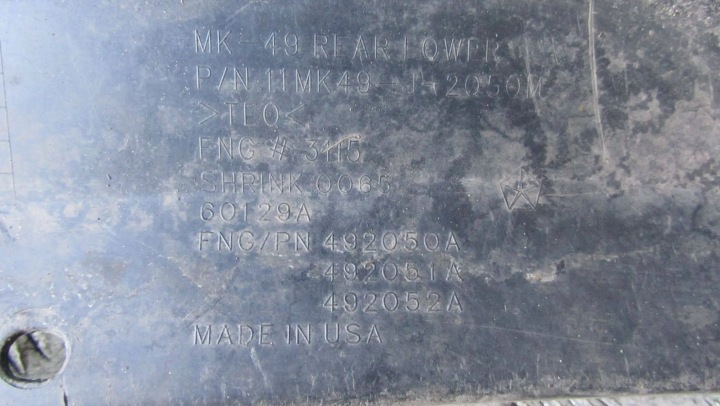 MK-49 REAR LOWER
P/N 11MK49-J-2050M
>TEO<
FNG # 3115
SHRINK 0065
60129A
FNG/PN 492050A
492051A
492052A
MADE IN USA